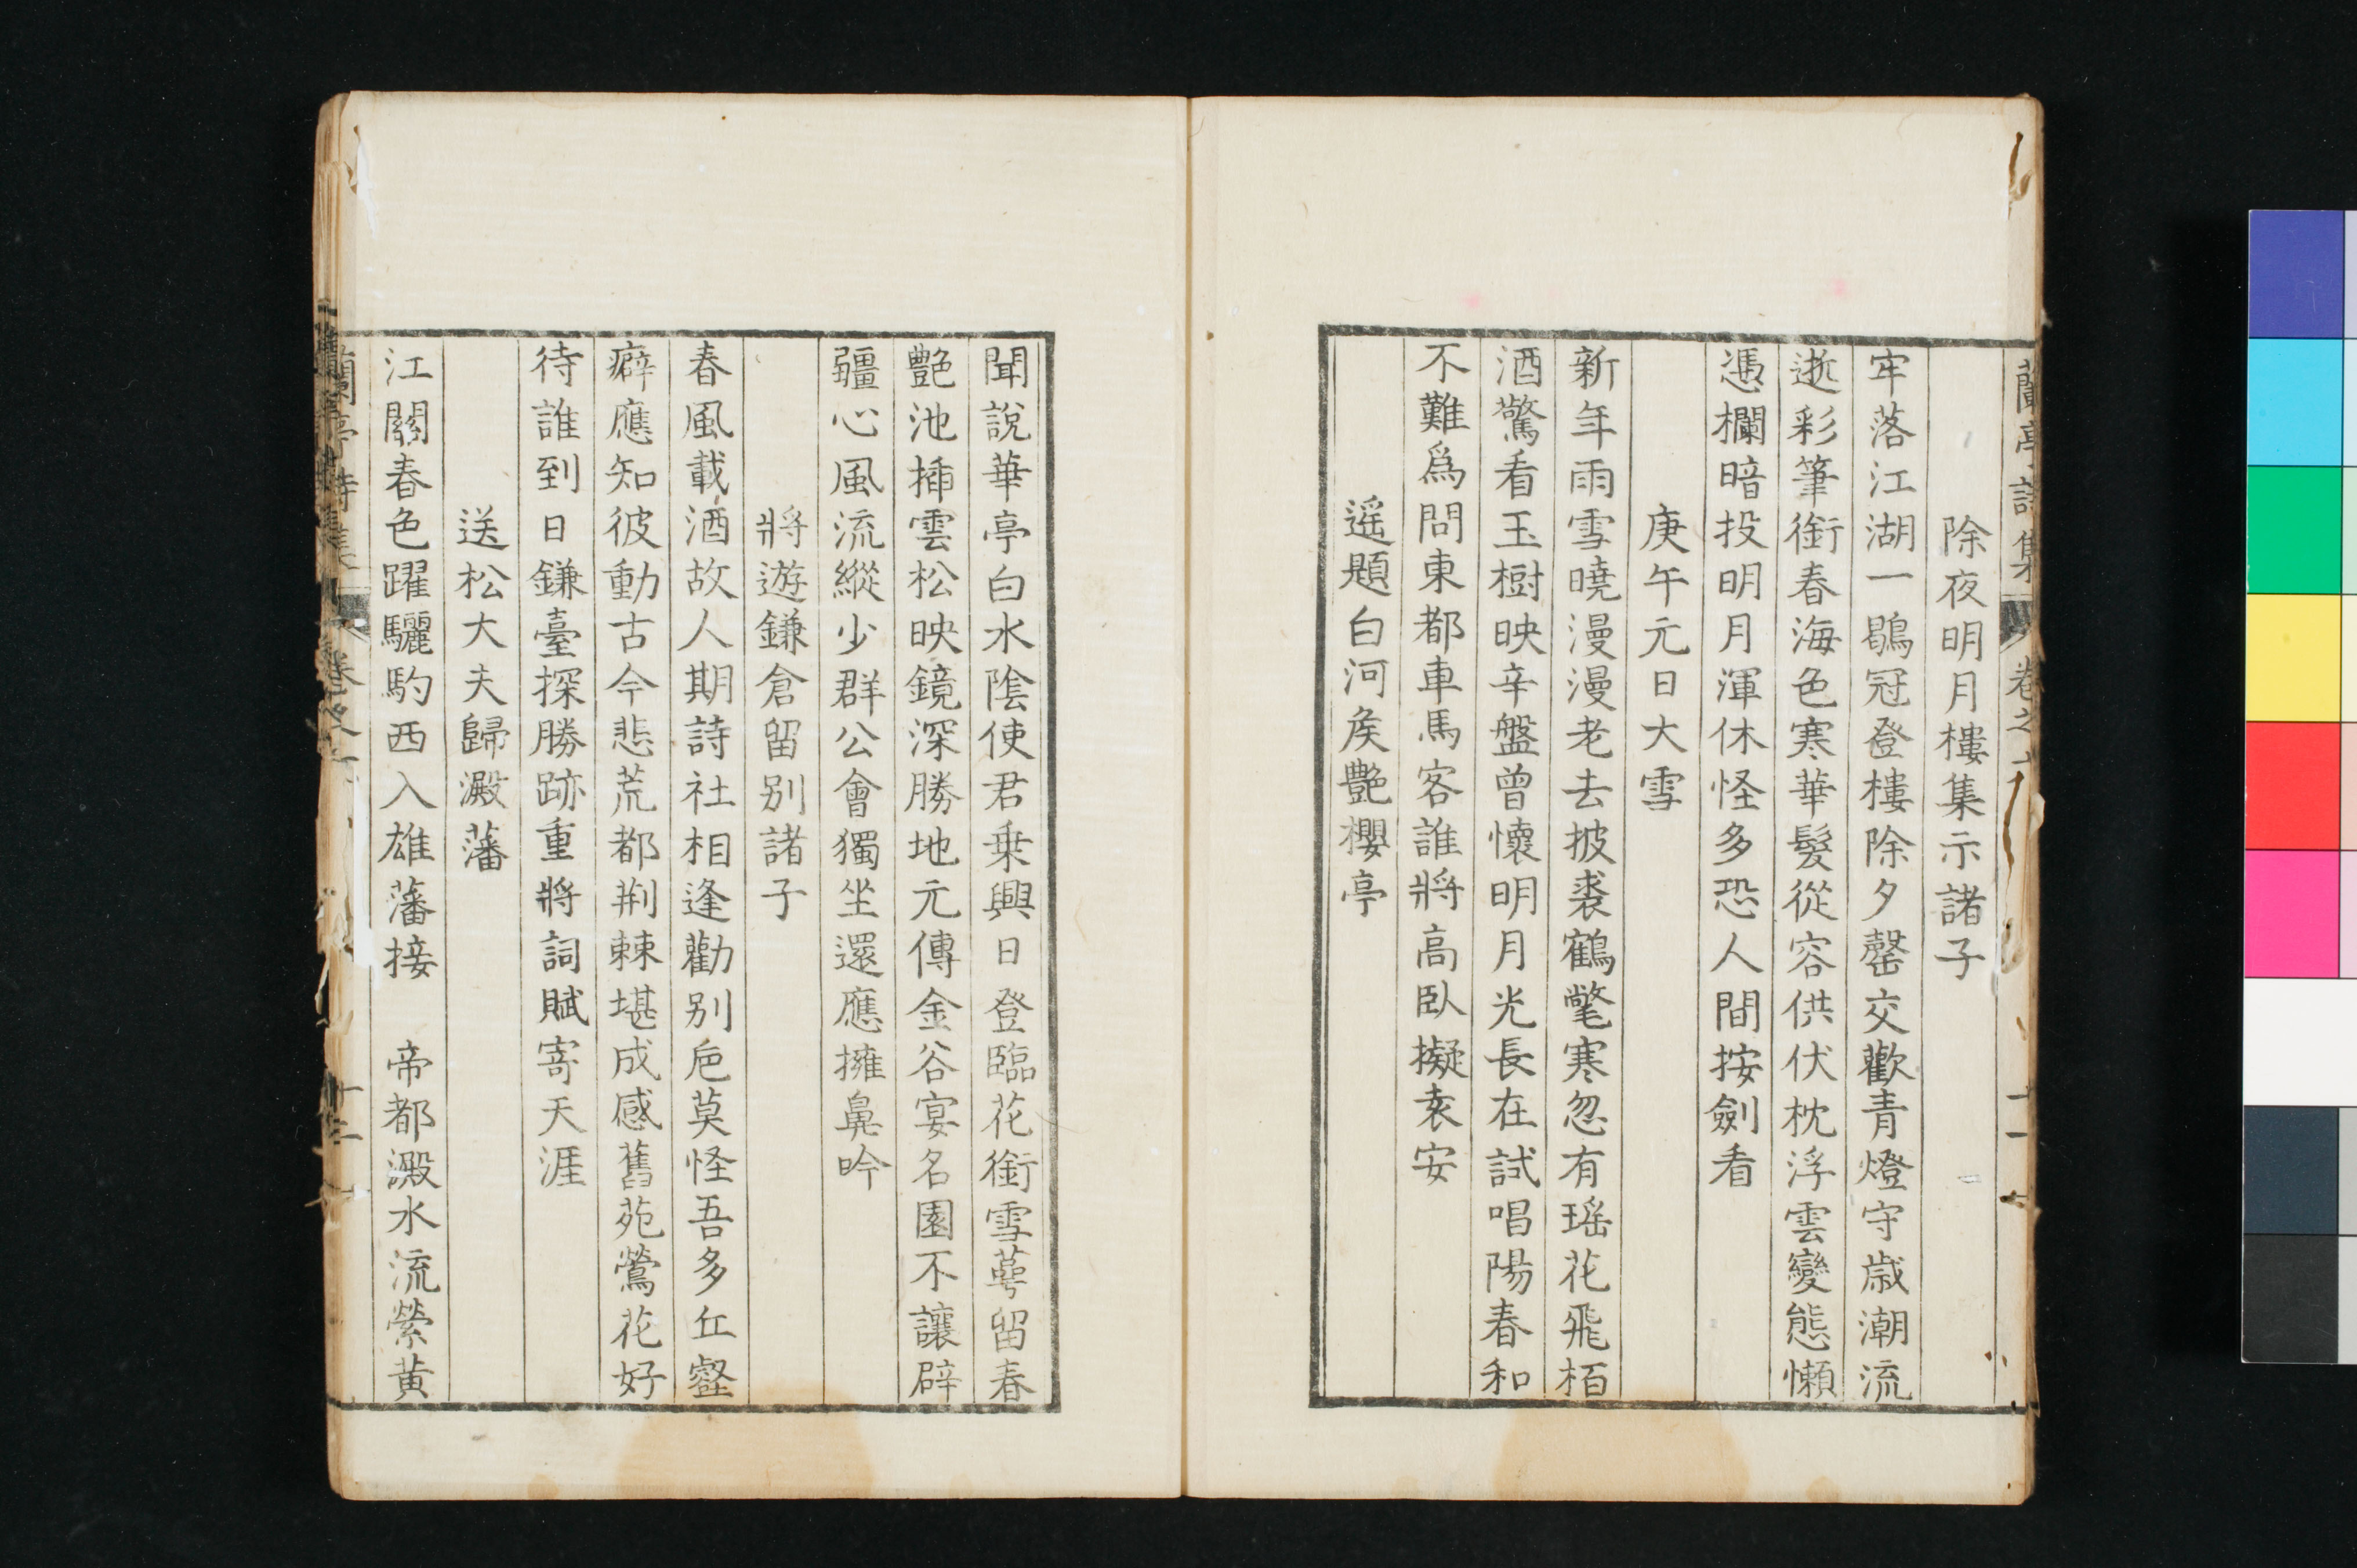 除夜明月樓集示諸子
牢落江湖一鶡冠登樓除夕罄交歡青燈守歳潮流
逝彩筆銜春海色寒華髮從容供伏枕浮雲變態懶
憑欄暗投明月渾休怪多恐人間按劍看
庚午元日大雪
新年雨雪曉漫漫老去披裘鶴氅寒忽有瑶花飛栢
酒驚看玉樹映辛盤曽懷明月光長在試唱陽春和
不難爲問東都車馬客誰將高臥擬袁安
遥題白河矦艶櫻亭
聞說華亭白水陰使君乗興日登臨花銜雪萼留春
艶池挿雲松映鏡深勝地元傳金谷宴名園不讓辟
疆心風流縱少群公會獨坐還應擁鼻吟
將遊鎌倉留別諸子
春風載酒故人期詩社相逢勸別巵莫怪吾多丘壑
癖應知彼動古今悲荒都荆棘堪成感舊苑鶯花好
待誰到日鎌臺探勝跡重將詞賦寄天涯
送松大夫歸澱藩
江關春色躍驪駒西入雄藩接　帝都澱水流縈黄
蘭亭詩集